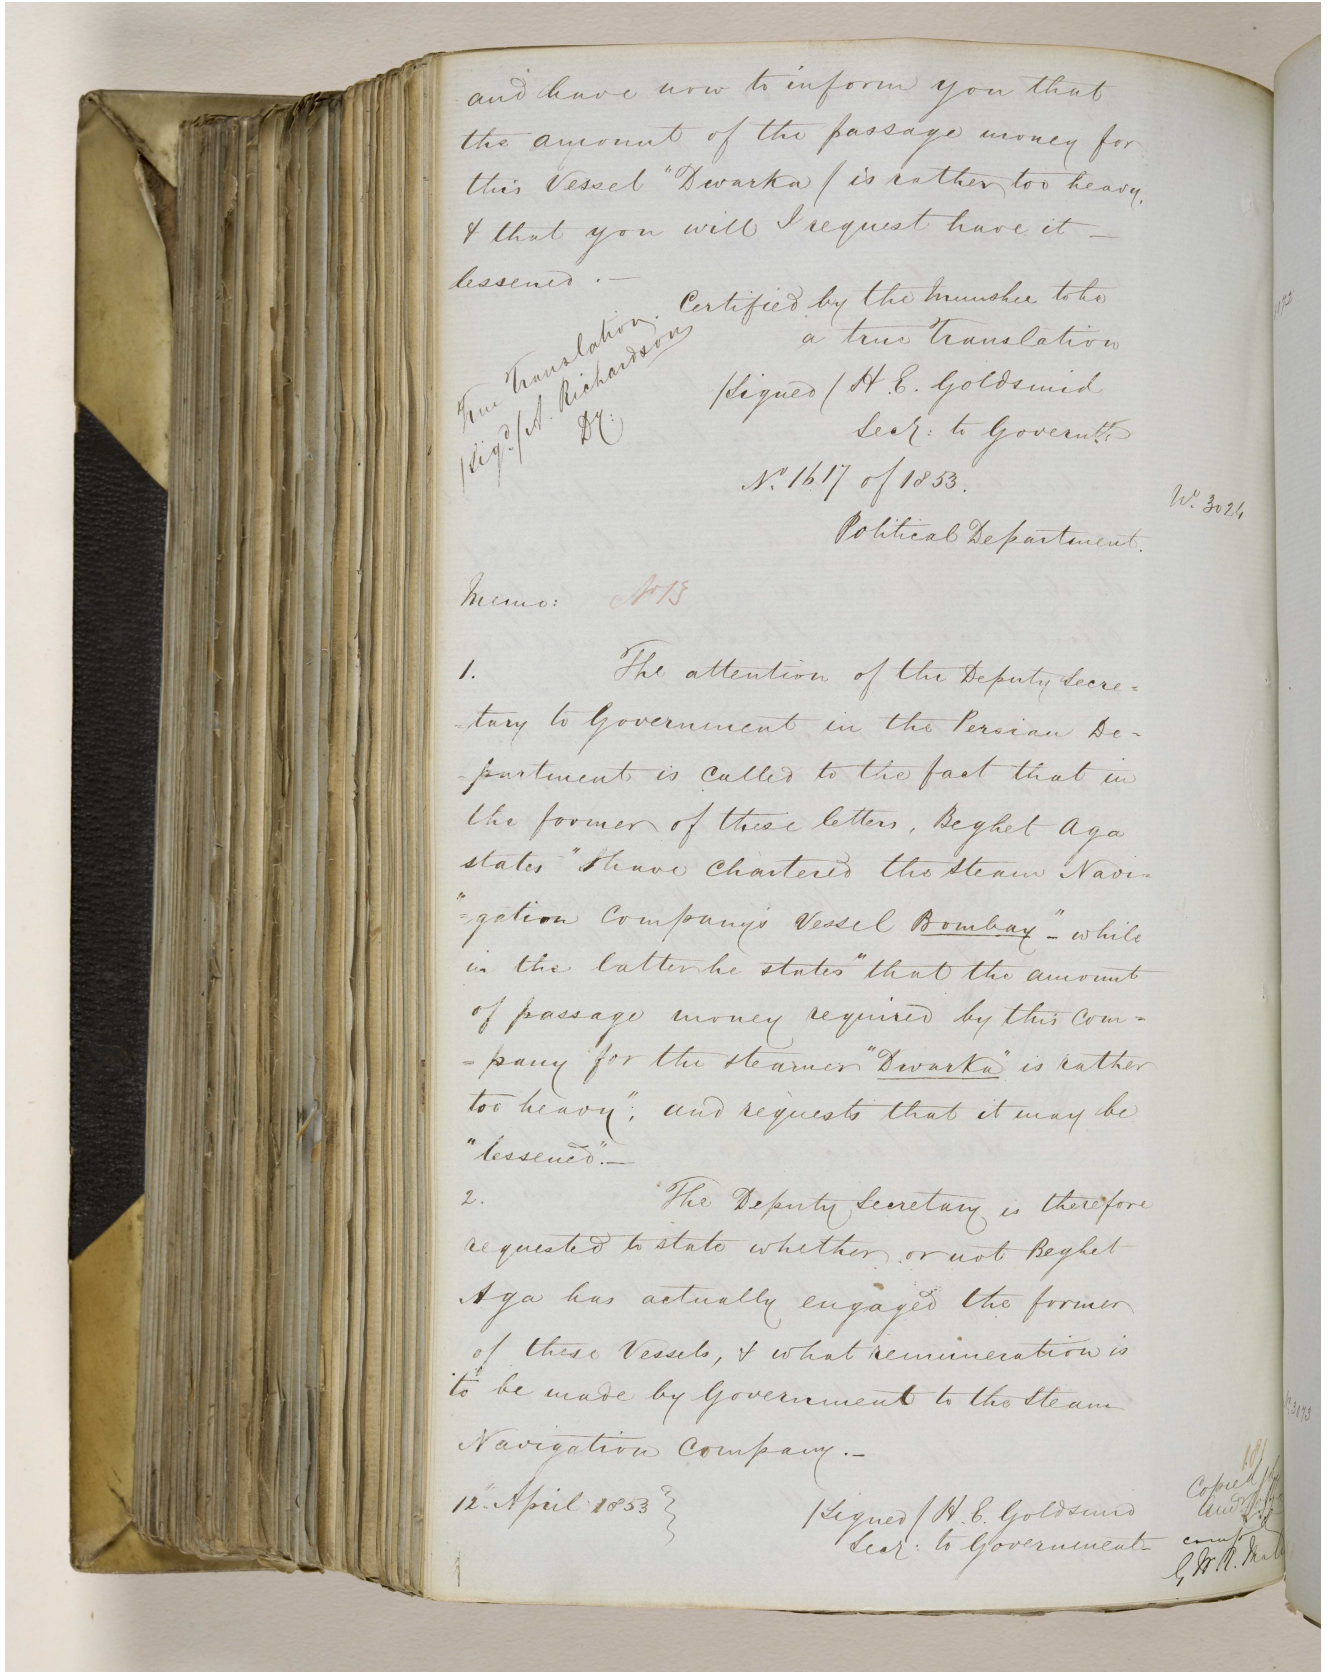 and have now to inform you that
the amount of the passage money for
this Vessel "Dwarka / is rather too heavy,
& that you will I request have it —
lessened . —
Certified by the Munshee to be
a true Translation
/Signed/ H. E. Goldsmid
Secy: to Governmt.
True Translation.
/Sigd./ A. Richardson
Dy:
No. 1617 of 1853.
No. 3024
Political Department.
Memo: No 13
1. The attention of the Deputy Secre=
=tary to Government in the Persian De=
=partment is called to the fact that in
the former of these letters, Beghet Aga
states "I have Chartered the Steam Navi=
"=gation Company's Vessel Bombay" – while
in the latter he states "that the amount
of passage money required by this Com=
=pany for the steamer "Dwarka" is rather
too heavy", and requests that it may be
"lessened". —
2. The Deputy Secretary is therefore
requested to state whether or not Beghet
Aga has actually engaged the former
of these Vessels, & what remuneration is
to be made by Government to the Steam
Navigation Company. —
12" April 1853 }
/Signed/ H. E. Goldsmid
Secy: to Government
Copied
and
G. W. R.